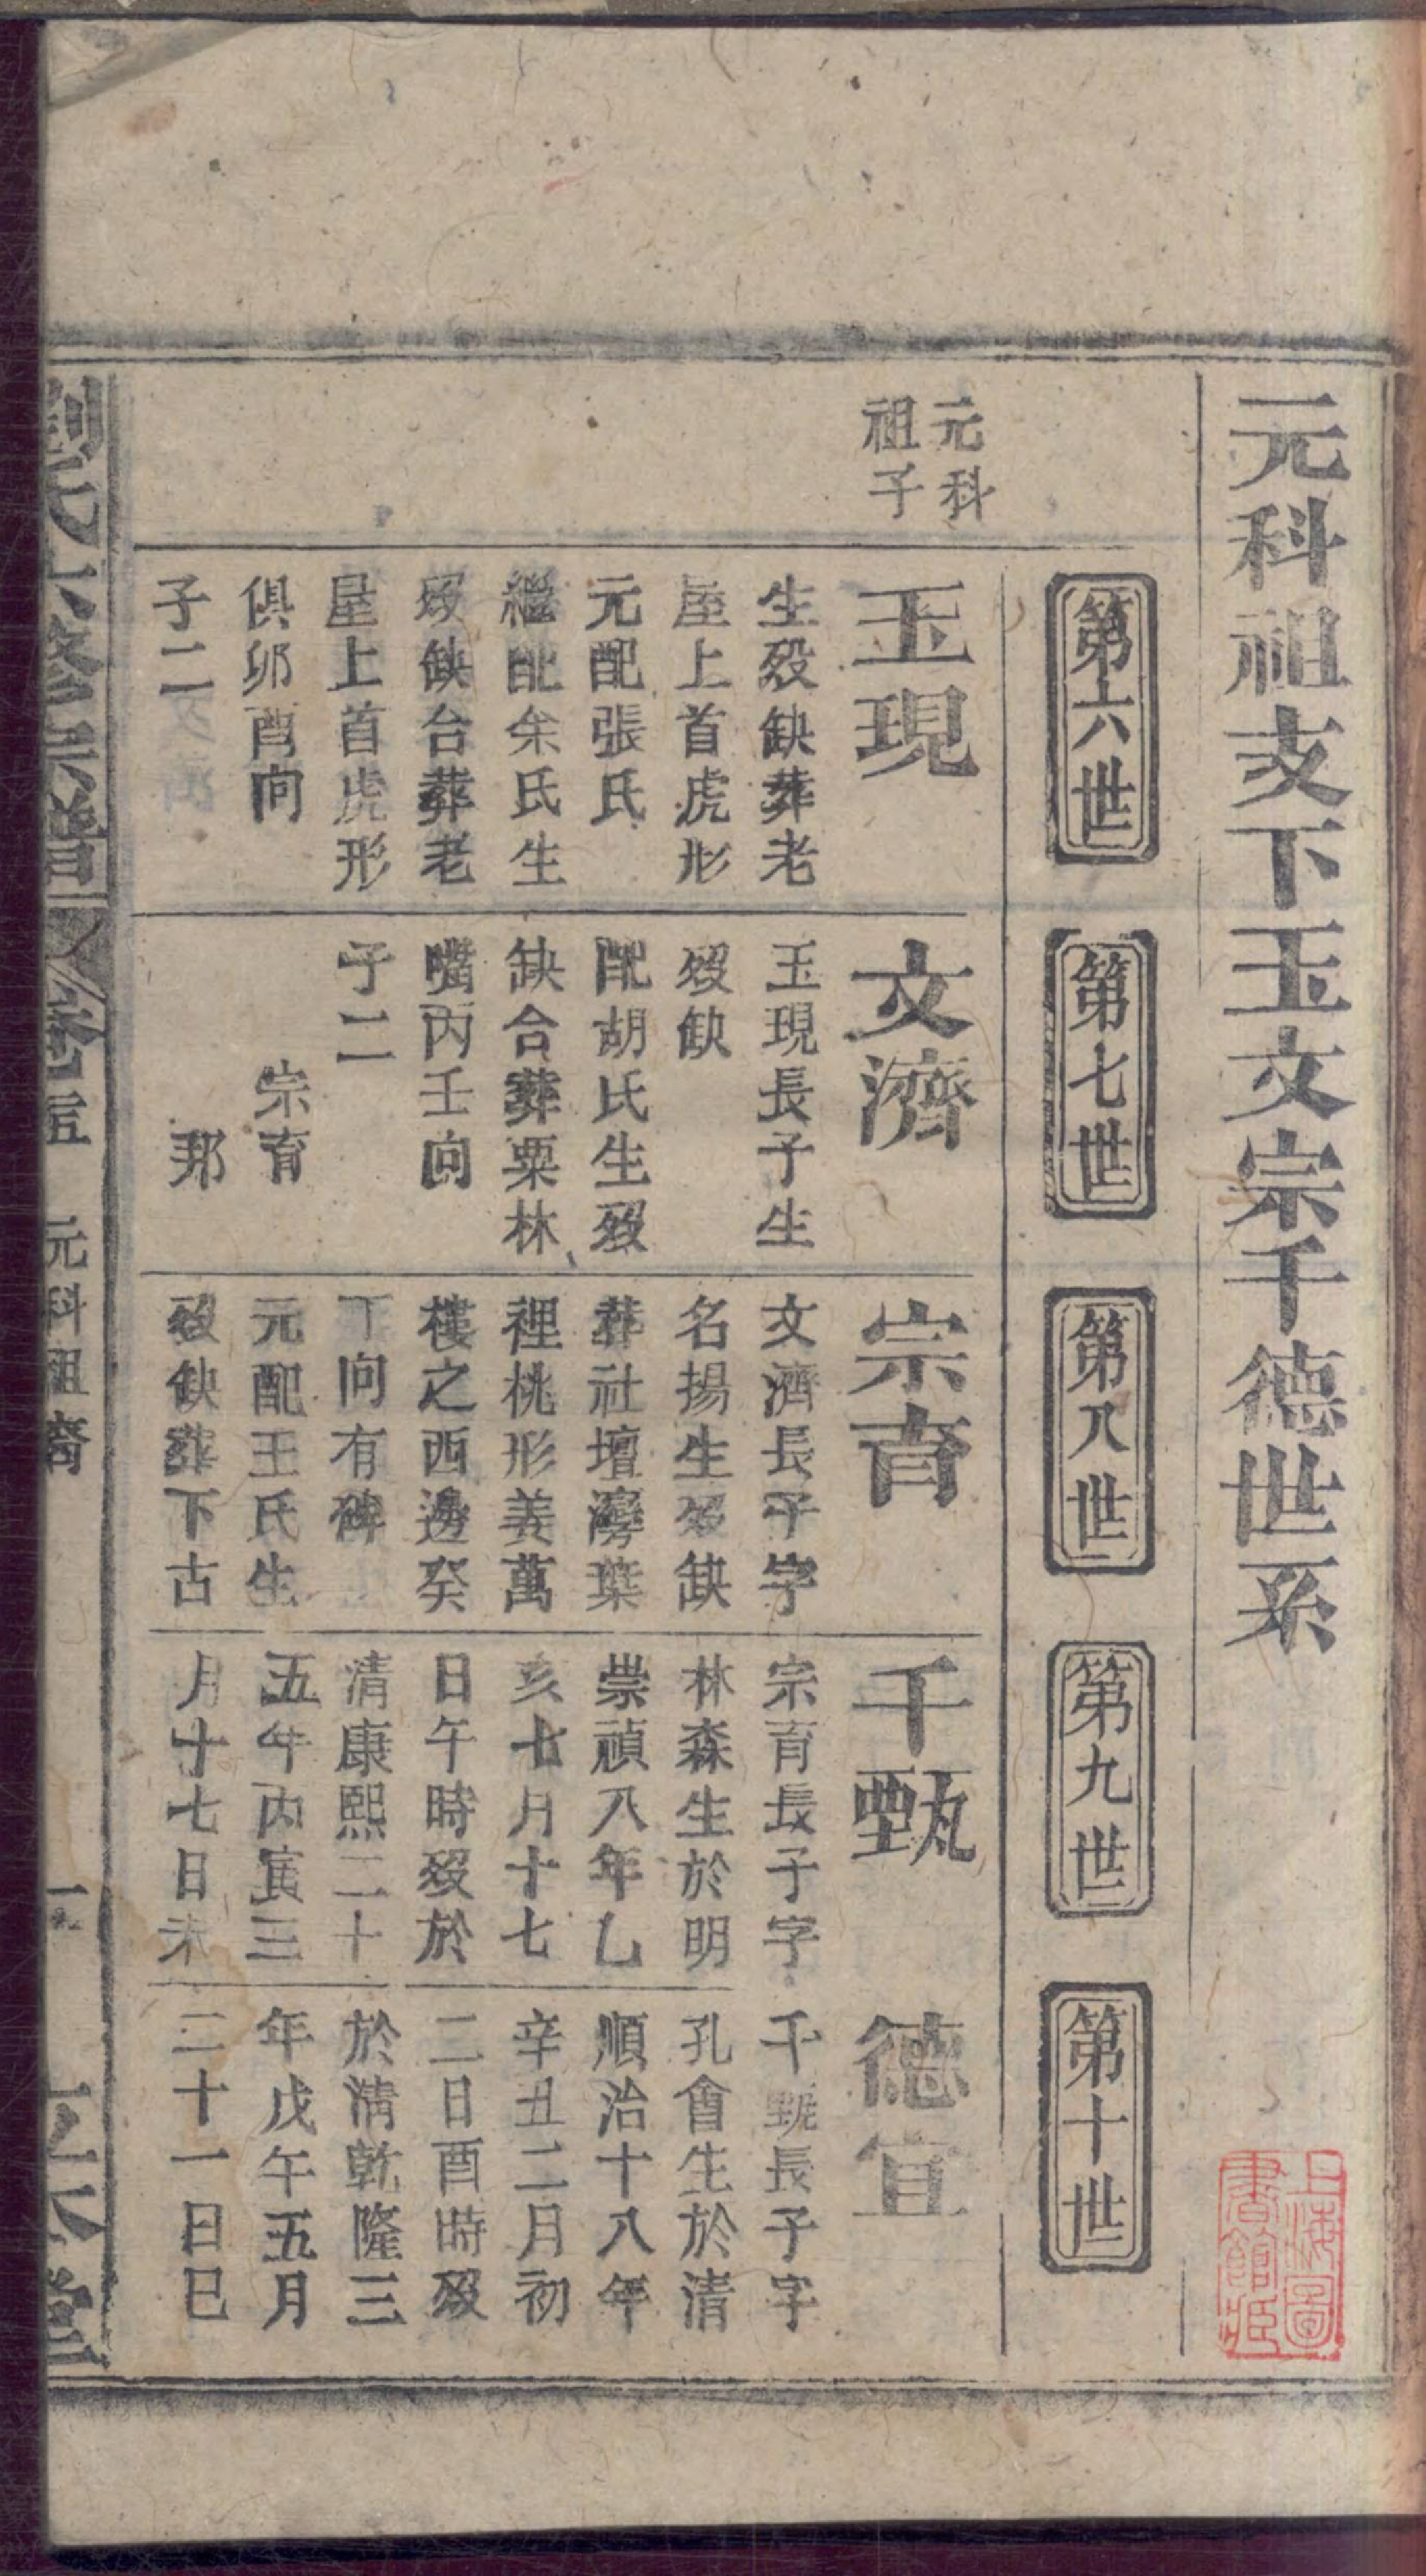 元科祖支下玉文宗千德世系
第六世
第七世
第八世
第九世
第十世
元科
祖子
玉現
生歿缺葬老
屋上首虎形
元配張氏
繼配朱氏生
歿缺合葬老
屋上首虎形
俱卯酉向
子二
文濟
玉現長子生
歿缺
配胡氏生歿
缺合葬粟林
嘴丙壬向
子二
宗育
邦
宗育
文濟長子字
名揚生歿缺
葬社壇灣葉
裡桃形姜萬
樓之西邊癸
丁向有碑
元配王氏生
歿缺葬下古
千甄
宗育長子字
林森生於明
崇禎八年乙
亥七月十七
日午時歿於
清康熙二十
五年丙寅三
月十七日未
德宜
千甄長子字
孔會生於清
順治十八年
辛丑二月初
二日酉時歿
於清乾隆三
年戊午五月
二十一日巳
劉氏六修宗譜
卷五
元科祖裔
一
上海圖
書館藏